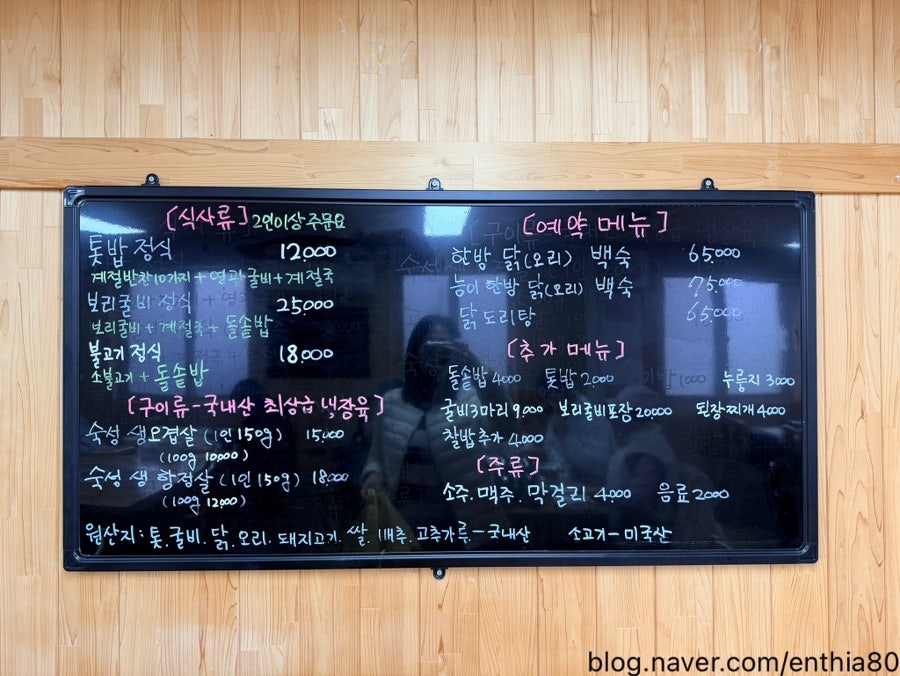 [식사류] 2인이상 주문요
톳밥 정식 12,000
계절반찬10가지 + 영광굴비 + 계절국
보리굴비 정식 25,000
보리굴비 + 계절국 + 돌솥밥
불고기 정식 18,000
소불고기 + 돌솥밥
[구이류 - 국내산 최상급 냉장육]
숙성 생오겹살 (1인 150g) 15,000
(100g 10,000)
숙성 생 항정살 (1인 150g) 18,000
(100g 12,000)
[예약 메뉴]
한방 닭(오리) 백숙 65,000
능이 한방 닭(오리) 백숙 75,000
닭도리탕 65,000
[추가 메뉴]
돌솥밥 4,000 톳밥 2,000 누룽지 3,000
굴비3마리 9,000 보리굴비포장 20,000 된장찌개 4,000
찰밥추가 4,000
[주류]
소주. 맥주. 막걸리 4,000 음료 2,000
원산지: 톳. 굴비. 닭. 오리. 돼지고기. 쌀. 배추. 고추가루 - 국내산 소고기 - 미국산
blog.naver.com/enthia80